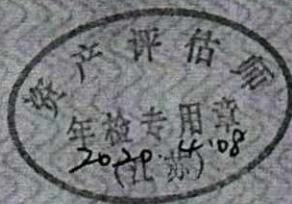 资产评估师
年检专用章
2020.4.08
(江苏)